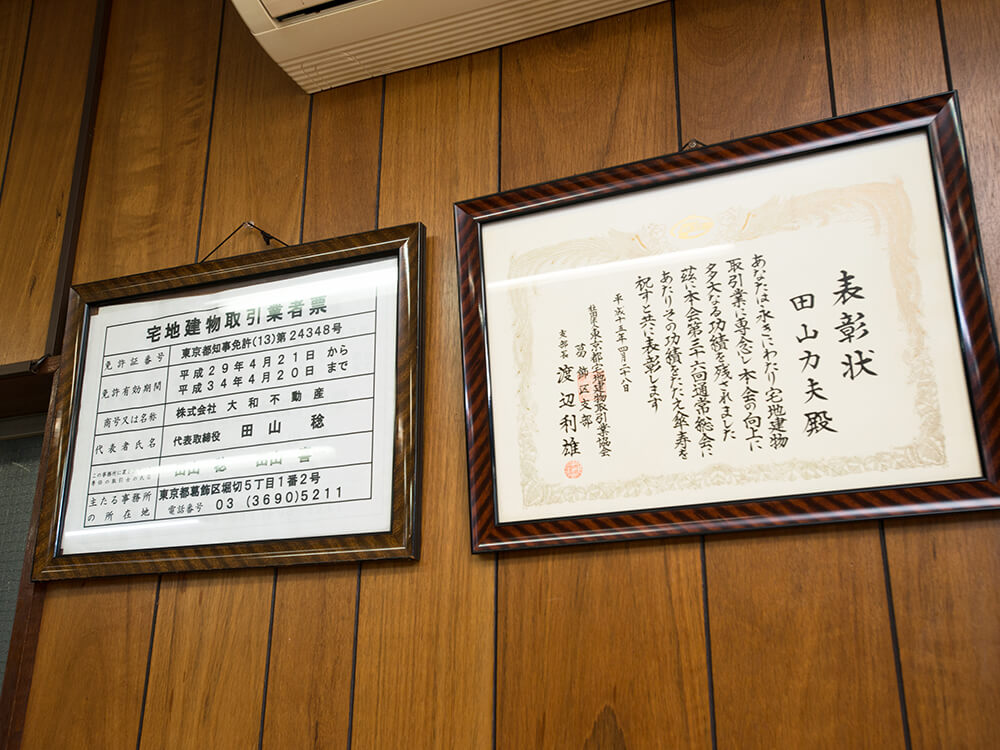 宅地建物取引業者票
免許証番号
東京都知事免許(13)第24348号
免許有効期間
平成29年4月21日から
平成34年4月20日まで
商号又は名称
株式会社 大和不動産
代表者氏名
代表取締役 田山 稔
この事務所に置く
主たる事務所
の所在地
東京都葛飾区堀切5丁目1番2号
電話番号 03 (3690)5211
表彰状
田山力夫殿
あなたは永きにわたり宅地建物
取引業に専念し本会の向上に
多大なる功績を残されました
茲に本会第三十六回通常総会に
あたりその功績をたたえ傘寿を
祝すと共に表彰します
平成十五年四月二十八日
社団法人東京都宅地建物取引業協会
葛飾区支部
支部長 渡辺利雄